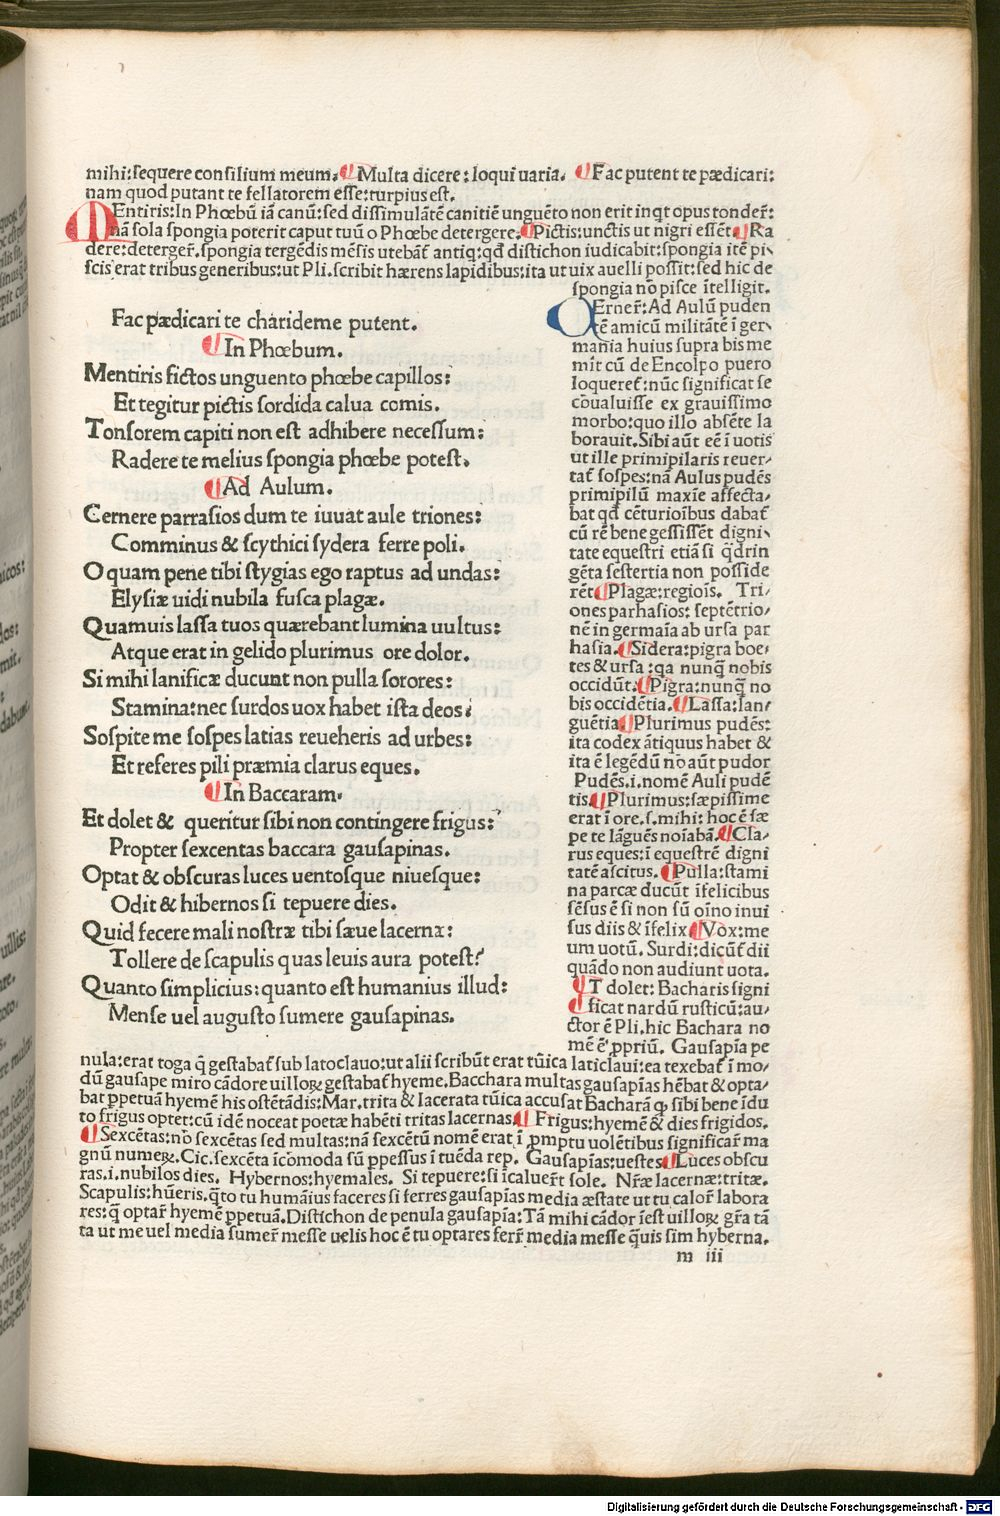 mihi:sequere consilium meum. Multa dicere: loqui uaria. Fac putent te pædicari:
nam quod putant te fellatorem esse:turpius est.
MEntiris:In Phœbũ iã canũ:sed dissimulãtẽ canitiẽ unguẽto non erit inqt opus tonder̃:
nã sola spongia poterit caput tuũ o Phœbe detergere. Pictis:unctis ut nigri essẽt. Ra
dere:deterger̃.spongia tergẽdis mẽsis utebãt antiq:qđ distichon iudicabit:spongia itẽ pi
scis erat tribus generibus:ut Pli.scribit hærens lapidibus:ita ut uix auelli possit:sed hic de
spongia nõ pisce ĩtelligit.
Fac pædicari te charideme putent.
In Phœbum.
Mentiris fictos unguento phœbe capillos:
Et tegitur pictis sordida calua comis.
Tonsorem capiti non est adhibere necessum:
Radere te melius spongia phœbe potest.
Ad Aulum.
Cernere parrasios dum te iuuat aule triones:
Comminus & scythici sydera ferre poli.
O quam pene tibi stygias ego raptus ad undas:
Elysiæ uidi nubila fusca plagæ.
Quamuis lassa tuos quærebant lumina uultus:
Atque erat in gelido plurimus ore dolor.
Si mihi lanificæ ducunt non pulla sorores:
Stamina:nec surdos uox habet ista deos:
Sospite me sospes latias reueheris ad urbes:
Et referes pili præmia clarus eques.
In Baccaram.
Et dolet & queritur sibi non contingere frigus:
Propter sexcentas baccara gausapinas.
Optat & obscuras luces uentosque niuesque:
Odit & hibernos si tepuere dies.
Quid fecere mali nostræ tibi sæue lacernæ:
Tollere de scapulis quas leuis aura potest?
Quanto simplicius:quanto est humanius illud:
Mense uel augusto sumere gausapinas.
CErner̃:Ad Aulũ puden
tẽ amicũ militãtẽ ĩ ger
mania huius supra bis me
mit cũ de Encolpo puero
loqueret̃:nũc significat se
cõualuisse ex grauissimo
morbo:quo illo absẽte la
borauit.Sibi aũt eẽ ĩ uotis
ut ille primipilaris reuer
tat̃ sospes:nã Aulus pudẽs
primipilũ maxĩe affecta
bat qđ cẽturioĩbus dabat̃
cũ rẽ bene gessissẽt digni
tate equestri etiã si q̃drin
gẽta sestertia non posside
rẽt. Plagæ:regiõis. Tri
ones parhasios: septẽtrio
nẽ in germaĩa ab ursa par
hasia. Sidera:pigra boe
tes & ursa:qa nunq̃ nobis
occidũt. Pigra:nunq̃ no
bis occidẽtia. Lassa:lan
guẽtia. Plurimus pudẽs:
ita codex ãtiquus habet &
ita ẽ legẽdũ nõ aũt pudor
Pudẽs.i.nomẽ Auli pudẽ
tis. Plurimus:sæpissime
erat ĩ ore.s.mihi: hoc ẽ sæ
pe te lãguẽs noĩabã. Cla
rus eques:ĩ equestrẽ digni
tatẽ ascitus. Pulla:stami
na parcæ ducũt ĩfelicibus
sẽsus ẽ si non sũ oĩno inui
sus diis & ĩfelix. Vox:me
um uotũ. Surdi:dicũt̃ dii
quãdo non audiunt uota.
ET dolet: Bacharis signi
ficat nardũ rusticũ:au
ctor ẽ Pli.hic Bachara no
mẽ ẽ ꝓpriũ. Gausapĩa pe
nula:erat toga q̃ gestabat̃ sub latoclauo:ut alii scribũt erat tũica laticlaui:ea texebat̃ ĩ mo
dũ gausape miro cãdore uilloꝝ gestabat̃ hyeme.Bacchara multas gausapĩas hẽbat & opta
bat ꝑpetuã hyemẽ his ostẽtãdis:Mar.trita & lacerata tũica accusat Bacharã ꝙ sibi bene ĩdu
to frigus optet:cũ idẽ noceat poetæ habẽti tritas lacernas. Frigus:hyemẽ & dies frigidos.
Sexcẽtas:nõ sexcẽtas sed multas:nã sexcẽtũ nomẽ erat ĩ ꝓmptu uolẽtibus significar̃ ma
gnũ numeꝝ.Cic.sexcẽta ĩcõmoda sũ ꝑpessus ĩ tuẽda rep. Gausapĩas:uestes. Luces obscu
ras.i.nubilos dies. Hybernos:hyemales. Si tepuere:si ĩcaluer̃t sole. Nr̃æ lacernæ:tritæ.
Scapulis:hũeris.q̃to tu humãius faceres si ferres gausapĩas media æstate ut tu calor̃ labora
res:q̃ optar̃ hyemẽ ꝑpetuã.Distichon de penula gausapĩa:Tã mihi cãdor ĩest uilloꝝ gr̃a tã
ta ut me uel media sumer̃ messe uelis hoc ẽ tu optares ferr̃ media messe q̃uis sim hyberna.
m iii
Digitalisierung gefördert durch die Deutsche Forschungsgemeinschaft - DFG